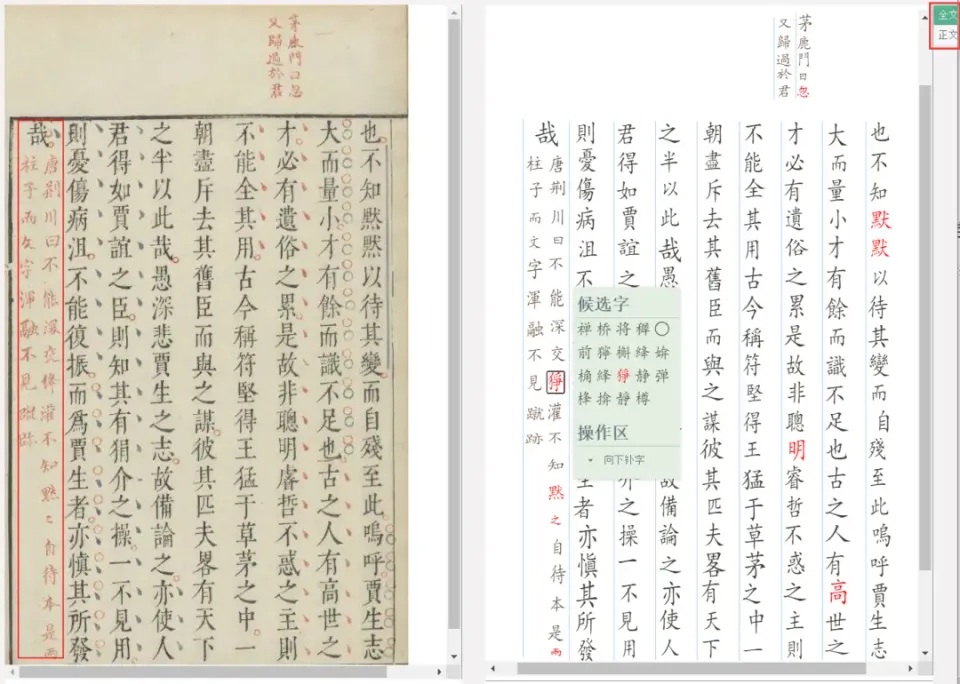 茅鹿門曰忽
又歸過於君
也。不知黙黙以待其變。而自殘至此。嗚呼。賈生志
大而量小。才有餘而識不足也。古之人有高世之
才。必有遺俗之累。是故非聰明睿哲不惑之主。則
不能全其用。古今稱符堅得王猛于草茅之中。一
朝盡斥去其舊臣而與之謀。彼其匹夫畧有天下
之半以此哉。愚深悲賈生之志。故備論之。亦使人
君得如賈誼之臣。則知其有狷介之操。一不見用。
則憂傷病沮。不能復振。而爲賈生者。亦慎其所發
哉。
唐荆川曰不能深交絳灌不知黙〻自待本是兩
柱子而文字渾融不見蹤跡
全文
正文
茅鹿門曰忽
又歸過於君
也不知默默以待其變而自殘至此嗚呼賈生志
大而量小才有餘而識不足也古之人有高世之
才必有遺俗之累是故非聰明睿哲不惑之主則
不能全其用古今稱符堅得王猛于草茅之中一
朝盡斥去其舊臣而與之謀彼其匹夫畧有天下
之半以此哉愚故備論之亦使人
君得如賈誼之介之操一不見用
則憂傷病沮不生者亦慎其所發
哉
唐荆川曰不能深交獰灌不知黙之自待本是兩
柱子而文字渾融不見蹴跡
候选字
禅 桥 将 禪 〇
前 獰 槲 絳
桷 絳 獰 静 弹
静 樽
操作区
向下补字